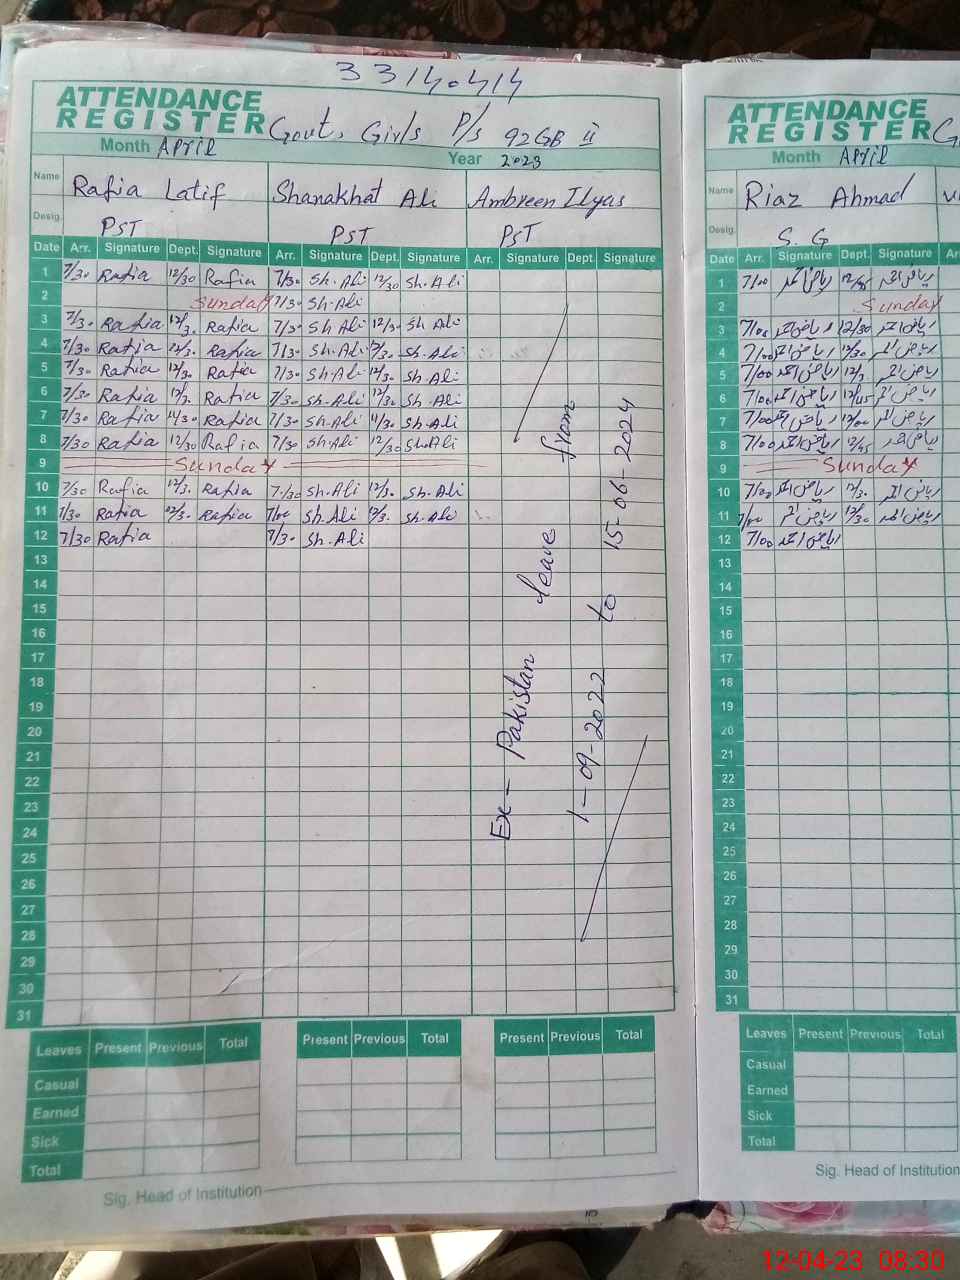 33140414
ATTENDANCE
REGISTER Govt. Girls P/s 92GB ii
Month April Year 2023
Name Rafia Latif Shanakhat Ali Ambreen Ilyas
Desig. PST PST PST
Date Arr. Signature Dept. Signature Arr. Signature Dept. Signature Arr. Signature Dept. Signature
1 7/30 Rafia 12/30 Rafia 7/30 Sh.Ali 12/30 Sh.Ali
2 Sunday 7/30 Sh.Ali
3 7/30 Rafia 12/30 Rafia 7/30 Sh Ali 12/30 Sh Ali
4 7/30 Rafia Rafia 7/30 Sh.Ali 12/30 Sh.Ali
5 7/30 Rafia 12/30 Rafia 7/30 Sh.Ali 12/30 Sh.Ali
6 7/30 Rafia 12/30 Rafia 7/30 Sh.Ali 12/30 Sh.Ali
7 7/30 Rafia Rafia 7/30 Sh.Ali 11/30 Sh.Ali
8 7/30 Rafia 12/30 Rafia 7/30 Sh.Ali 12/30 Sh.Ali
9 Sunday
10 7/30 Rafia 12/30 Rafia 7/30 Sh.Ali 12/30 Sh.Ali
11 7/30 Rafia 12/30 Rafia Sh.Ali 12/30 Sh.Ali
12 7/30 Rafia 7/30 Sh.Ali
13
14
15
16
17
18
19
20
21
22
23
24
25
26
27
28
29
30
31
Ex - Pakistan leave from
1-09-2022 to 15-06-2024
Leaves Present Previous Total Present Previous Total Present Previous Total
Casual
Earned
Sick
Total
Sig. Head of Institution
ATTENDANCE
REGISTER
Month April
Name Riaz Ahmad
Desig. S.G
Date Arr. Signature Dept. Signature
1 7/00 ریاض احمد ریاض احمد
2 Sunday
3 7/00 ریاض احمد 12/30 ریاض احمد
4 7/00 ریاض احمد 12/30 ریاض احمد
5 7/00 ریاض احمد ریاض احمد
6 7/00 ریاض احمد 12/45 ریاض احمد
7 7/00 ریاض احمد ریاض احمد
8 7/00 ریاض احمد 12/45 ریاض احمد
9 Sunday
10 7/00 ریاض احمد 12/30 ریاض احمد
11 7/00 ریاض احمد 12/30 ریاض احمد
12 7/00 ریاض احمد
13
14
15
16
17
18
19
20
21
22
23
24
25
26
27
28
29
30
31
Leaves Present Previous Total
Casual
Earned
Sick
Total
Sig. Head of Institution
12-04-23 08:30